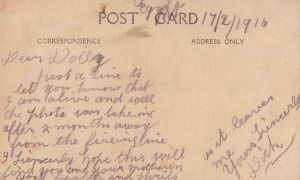 Egypt
17/2/1916
POST CARD
CORRESPONDENCE
ADDRESS ONLY
Dear Dolly
Just a line to
let you know that
I am alive and well
the photo was taken
after 2 months away
from the fireing line
I sincerely hope this will
find you and your mother in
health and
as it leaves
me
Yours Sincerely
Dick